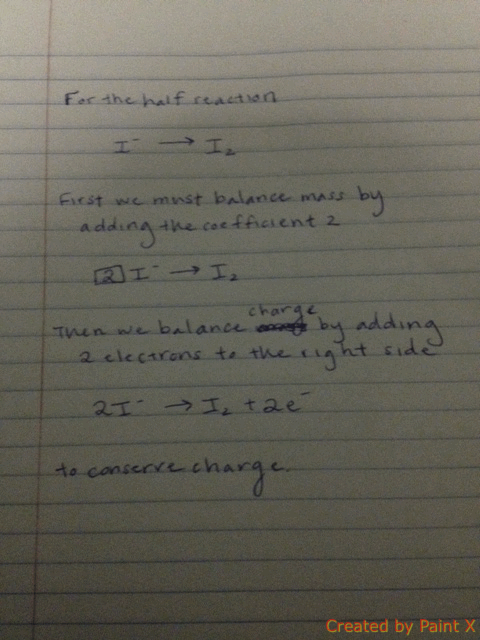 For the half reaction
I⁻ → I₂
First we must balance mass by
adding the coefficient 2
2 I⁻ → I₂
charge
Then we balance by adding
2 electrons to the right side
2I⁻ → I₂ + 2e⁻
to conserve charge.
Created by Paint X